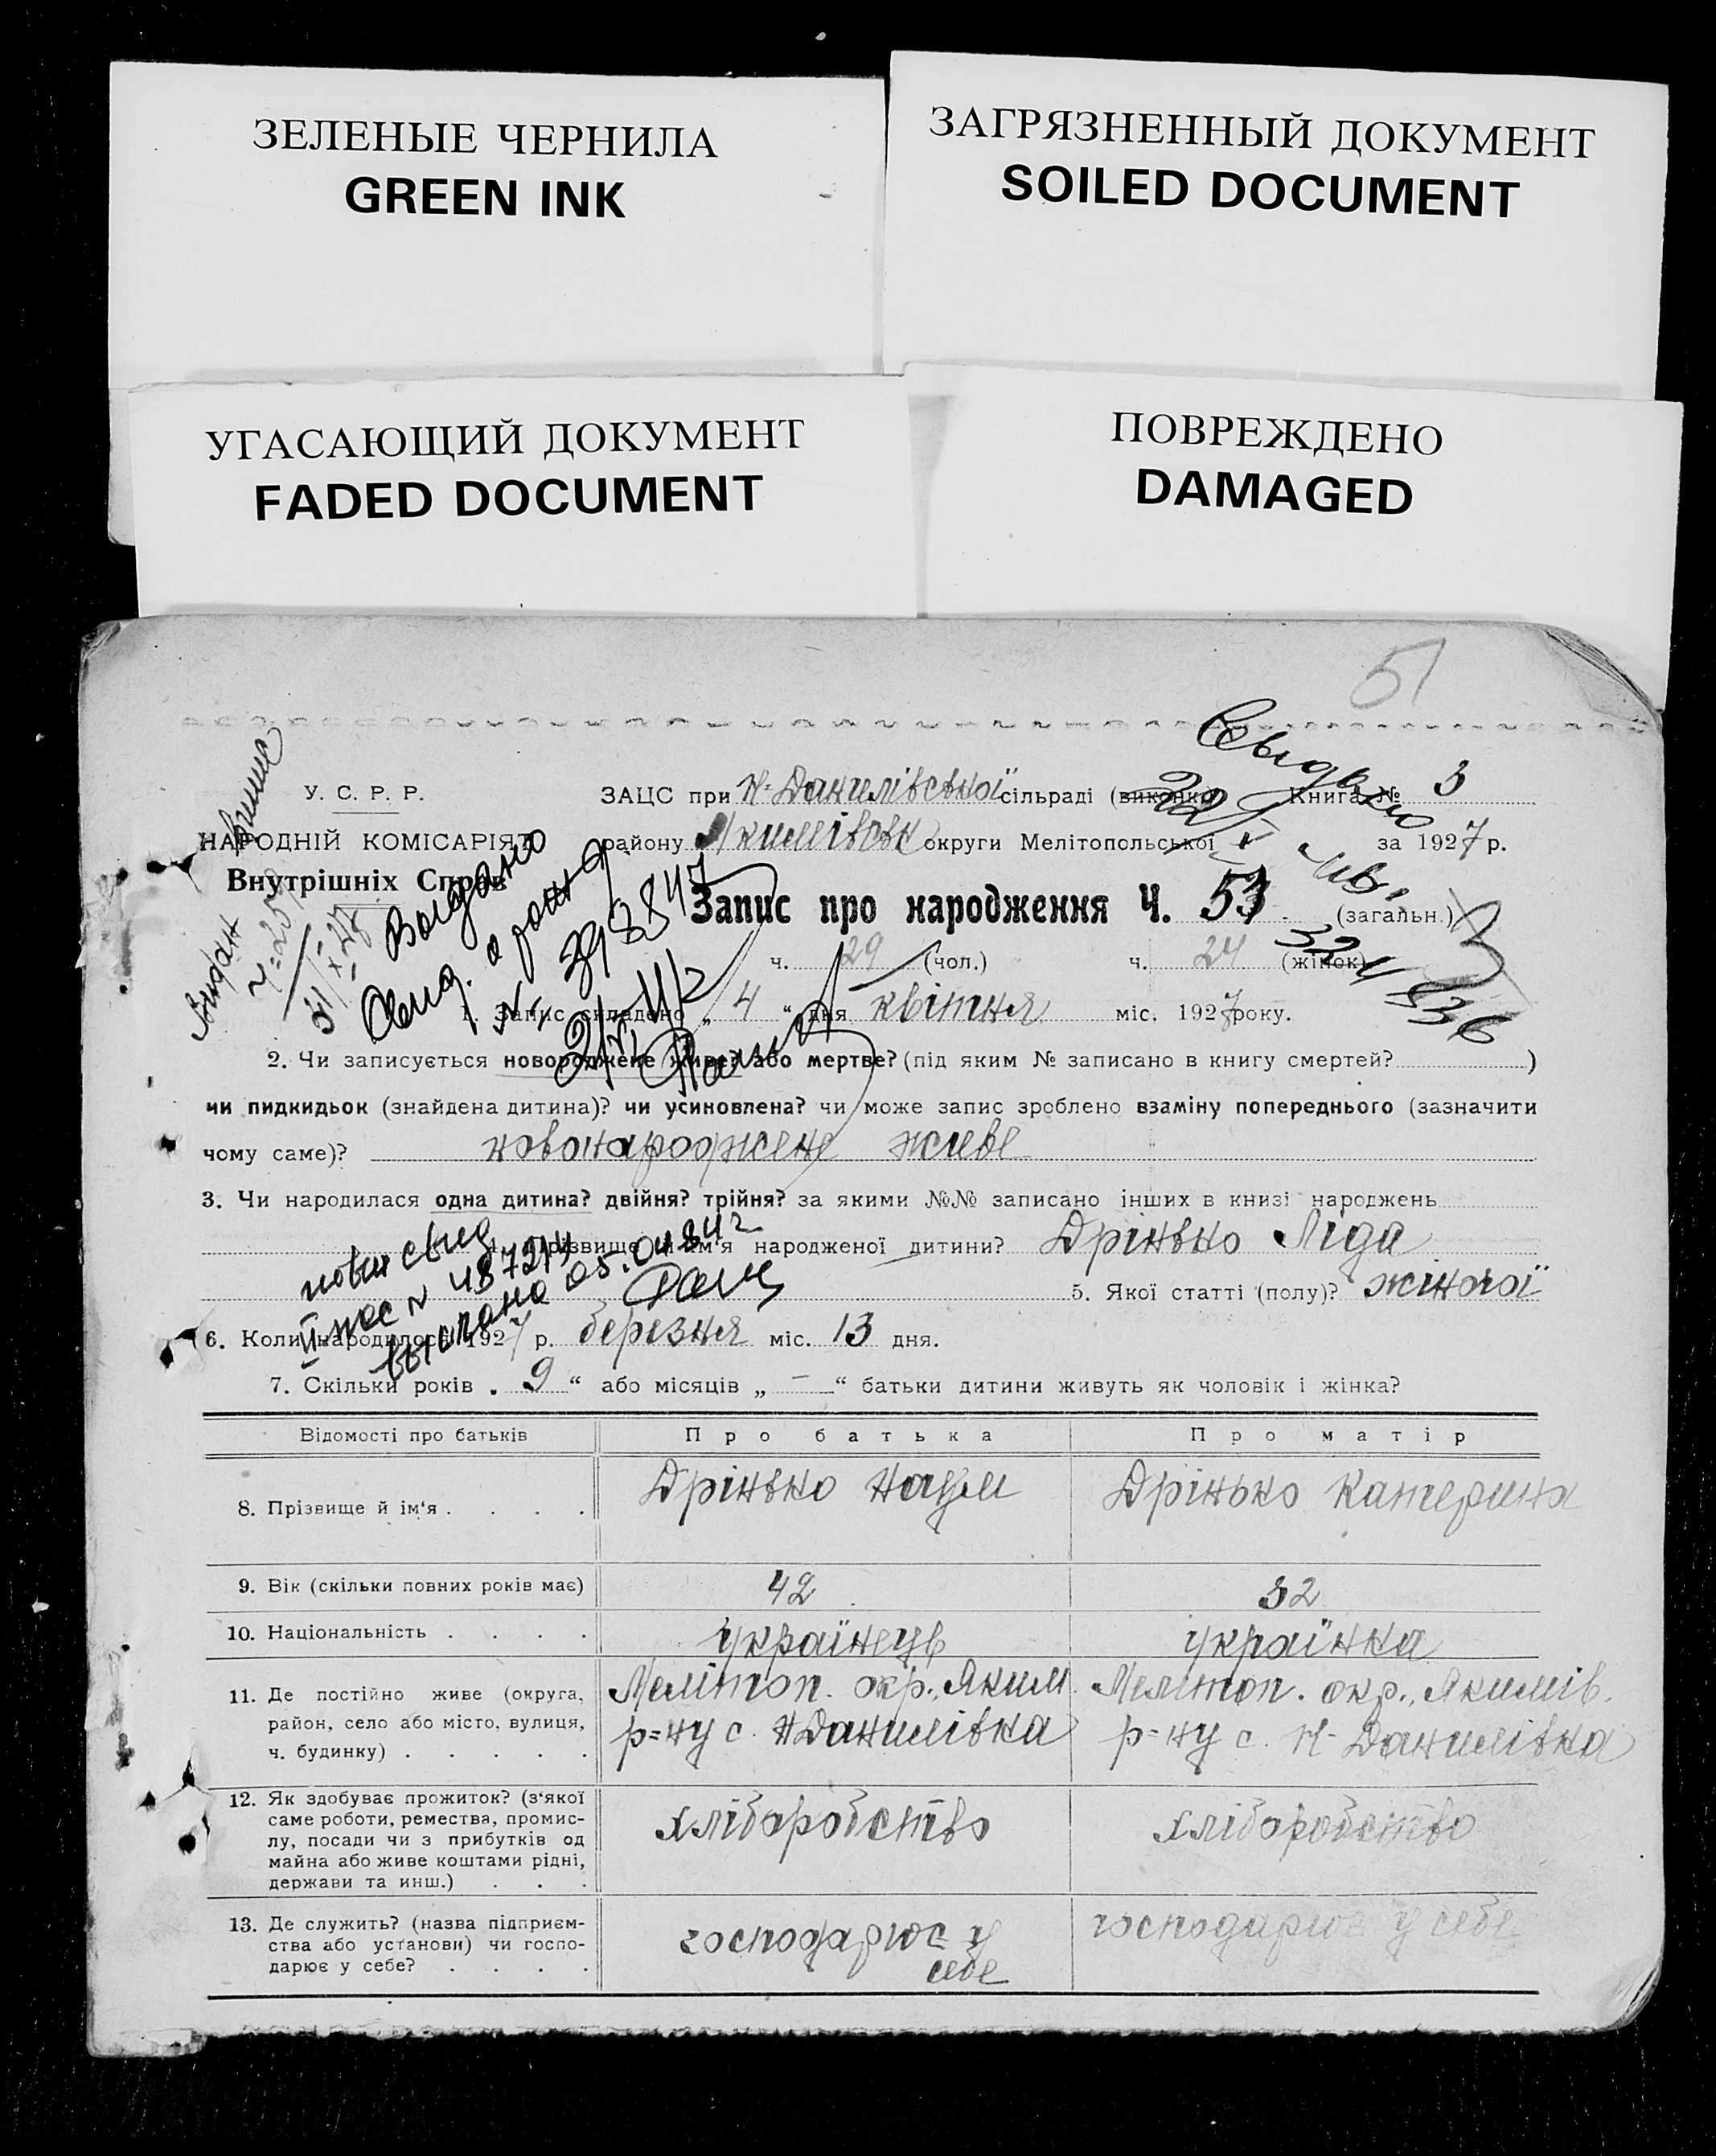 ЗЕЛЕНЫЕ ЧЕРНИЛА
GREEN INK
ЗАГРЯЗНЕННЫЙ ДОКУМЕНТ
SOILED DOCUMENT
УГАСАЮЩИЙ ДОКУМЕНТ
FADED DOCUMENT
ПОВРЕЖДЕНО
DAMAGED
51
У. С. Р. Р.
НАРОДНІЙ КОМІСАРІЯТ
Внутрішніх Справ
ЗАЦС при Н-Данилівської сільраді (виконко Книга № 3
району Якимівськ округи Мелітопольської за 1927 р.
Видано
Свид. о рожд
Запис про народження Ч. 53 (загальн.)
ч. 29 (чол.) ч. 24 (жінок)
1. Запис складено „ 4 “ дня квітня міс. 1927 року.
2. Чи записується новороджене живе? або мертве? (під яким № записано в книгу смертей? )
чи пидкидьок (знайдена дитина)? чи усиновлена? чи може запис зроблено взаміну попереднього (зазначити
чому саме)? новонароджене живе
3. Чи народилася одна дитина? двійня? трійня? за якими №№ записано інших в книзі народжень
4. Прізвище й ім'я народженої дитини? Дрінько Ліда
5. Якої статті (полу)? жіночої
6. Коли народилося 1927 р. березня міс. 13 дня.
7. Скільки років „ 9 “ або місяців „ – “ батьки дитини живуть як чоловік і жінка?
Відомості про батьків Про батька Про матір
8. Прізвище й ім‘я . . . . Дрінько Наум Дрінько Катерина
9. Вік (скільки повних років має) 42 32
10. Національність . . . . українець українка
11. Де постійно живе (округа, район, село або місто, вулиця, ч. будинку) . . . . .
Мелітоп. окр., Яким. р=ну с. Н Данилівка
Мелітоп. окр., Якимів. р=ну с. Н-Данилівка
12. Як здобуває прожиток? (з‘якої
саме роботи, ремества, промис-
лу, посади чи з прибутків од
майна або живе коштами рідні,
держави та инш.) . . .
хліборобство хліборобство
13. Де служить? (назва підприєм-
ства або установи) чи госпо-
дарює у себе? . . . .
господарює у себе
господарює у себе